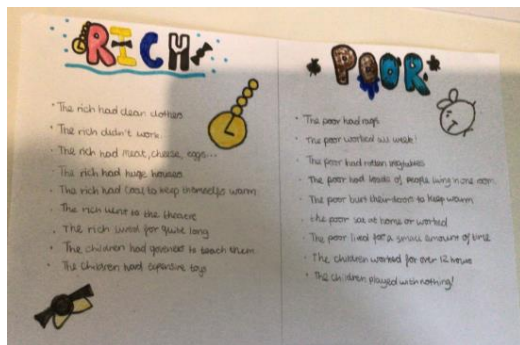 RICH
· The rich had clean clothes
· The rich didn't work
· The rich had meat, cheese, eggs...
· The rich had huge houses
· The rich had coal to keep themselfs warm
· The rich went to the theatre
· The rich lived for quite long
· The children had governess to teach them
· The children had expensive toys
POOR
· The poor had rags
· The poor worked all week!
· The poor had rotten vegetables
· The poor had loads of people living in one room
· The poor burt their door to keep warm
· The poor sat at home or worked
· The poor lived for a small amount of time
· The children worked for over 12 hours
· The children played with nothing!